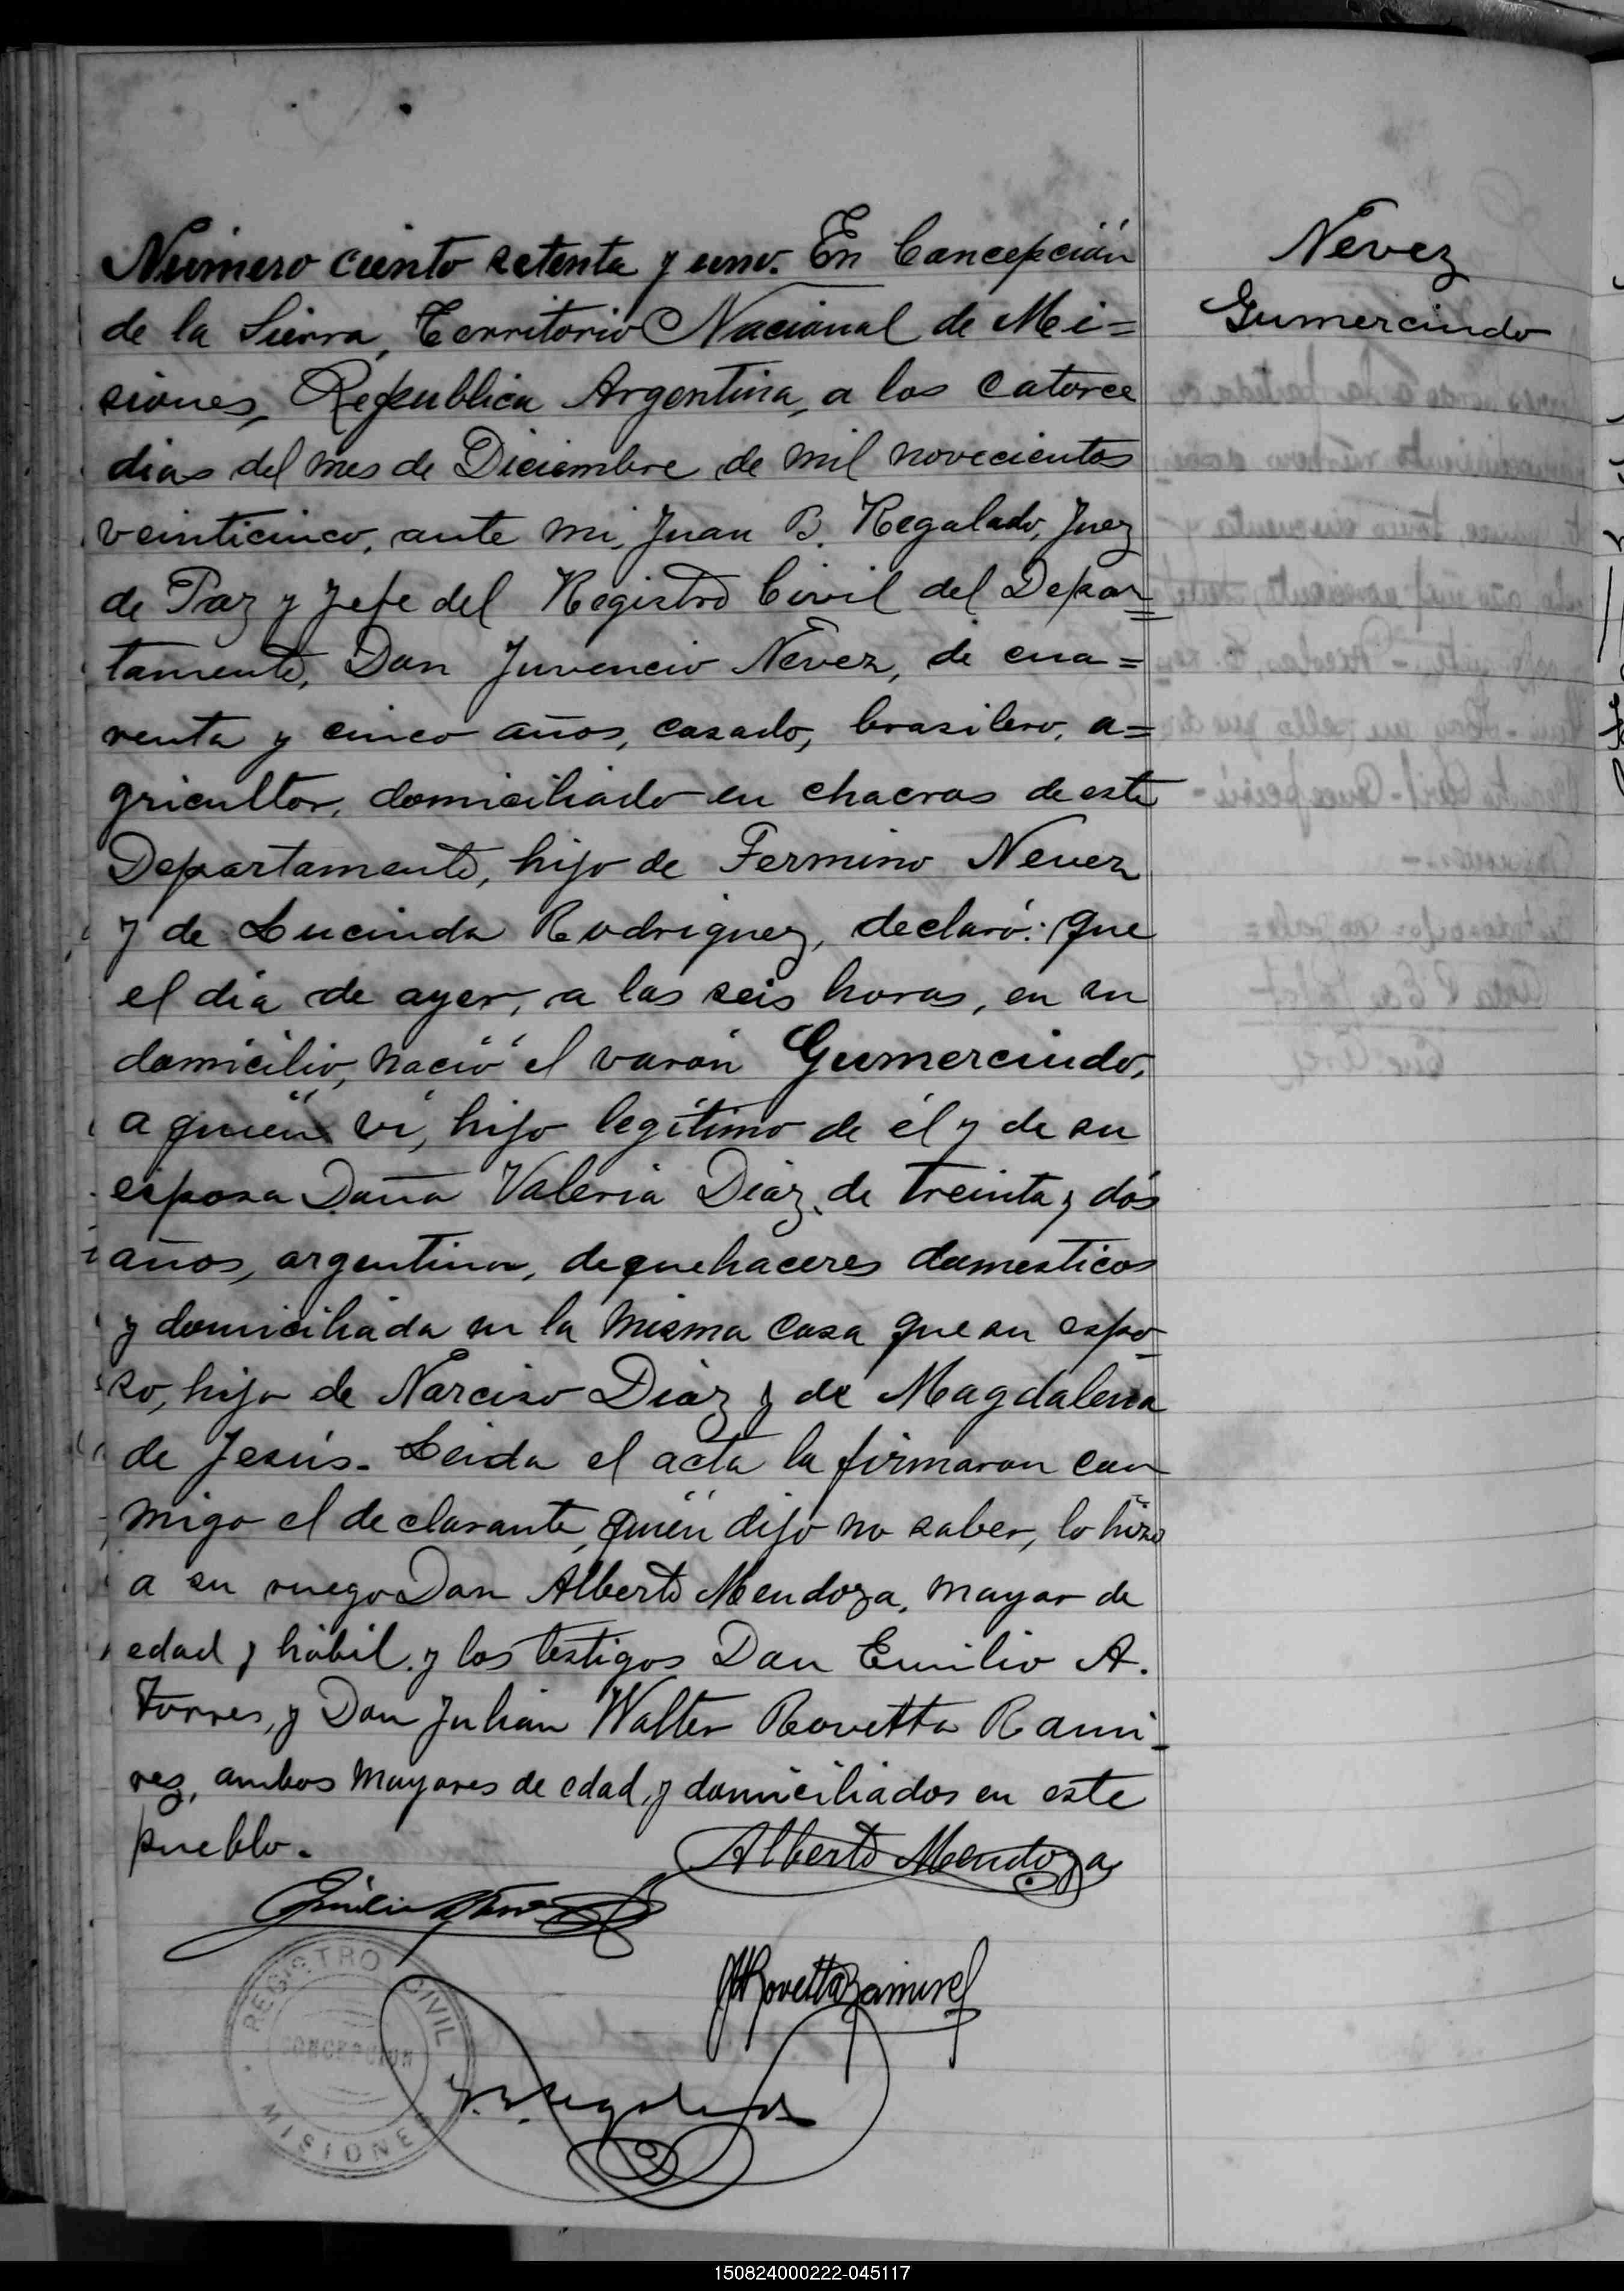 Número ciento setenta y uno. En Concepción
de la Sierra, Territorio Nacional de Mi=
siones, Republica Argentina, a los catorce
dias del mes de Diciembre de mil novecientos
veinticinco, ante mi, Juan B. Regalado, Juez
de Paz y Jefe del Registro Civil del Depar=
tamento, Don Juvencio Nevez, de cua=
renta y cinco años, casado, brasilero, a=
gricultor, domiciliado en chacras de este
Departamento, hijo de Fermino Nevez
y de Lucinda Rodriguez, declaró: que
el dia de ayer, a las seis horas, en su
domicilio, nació el varón Gumercindo,
a quién vi, hijo legítimo de él y de su
esposa Doña Valeria Diaz, de treinta y dós
años, argentina, de quehaceres domesticos
y domiciliada en la misma casa que su espo-
so, hija de Narciso Diaz y de Magdalena
de Jesús. Leida el acta la firmaron con
migo el declarante, quién dijo no saber, lo hizo
a su ruego Don Alberto Mendoza, mayor de
edad y hábil y los testigos Don Emilio A.
Torres, y Don Julián Walter Rovetta Rami-
rez, ambos mayores de edad, y domiciliados en este
pueblo.
Nevez
Gumercindo
Alberto Mendoza
Rovetta Ramirez
REGISTRO CIVIL
CONCEPCION
MISIONES
150824000222-045117